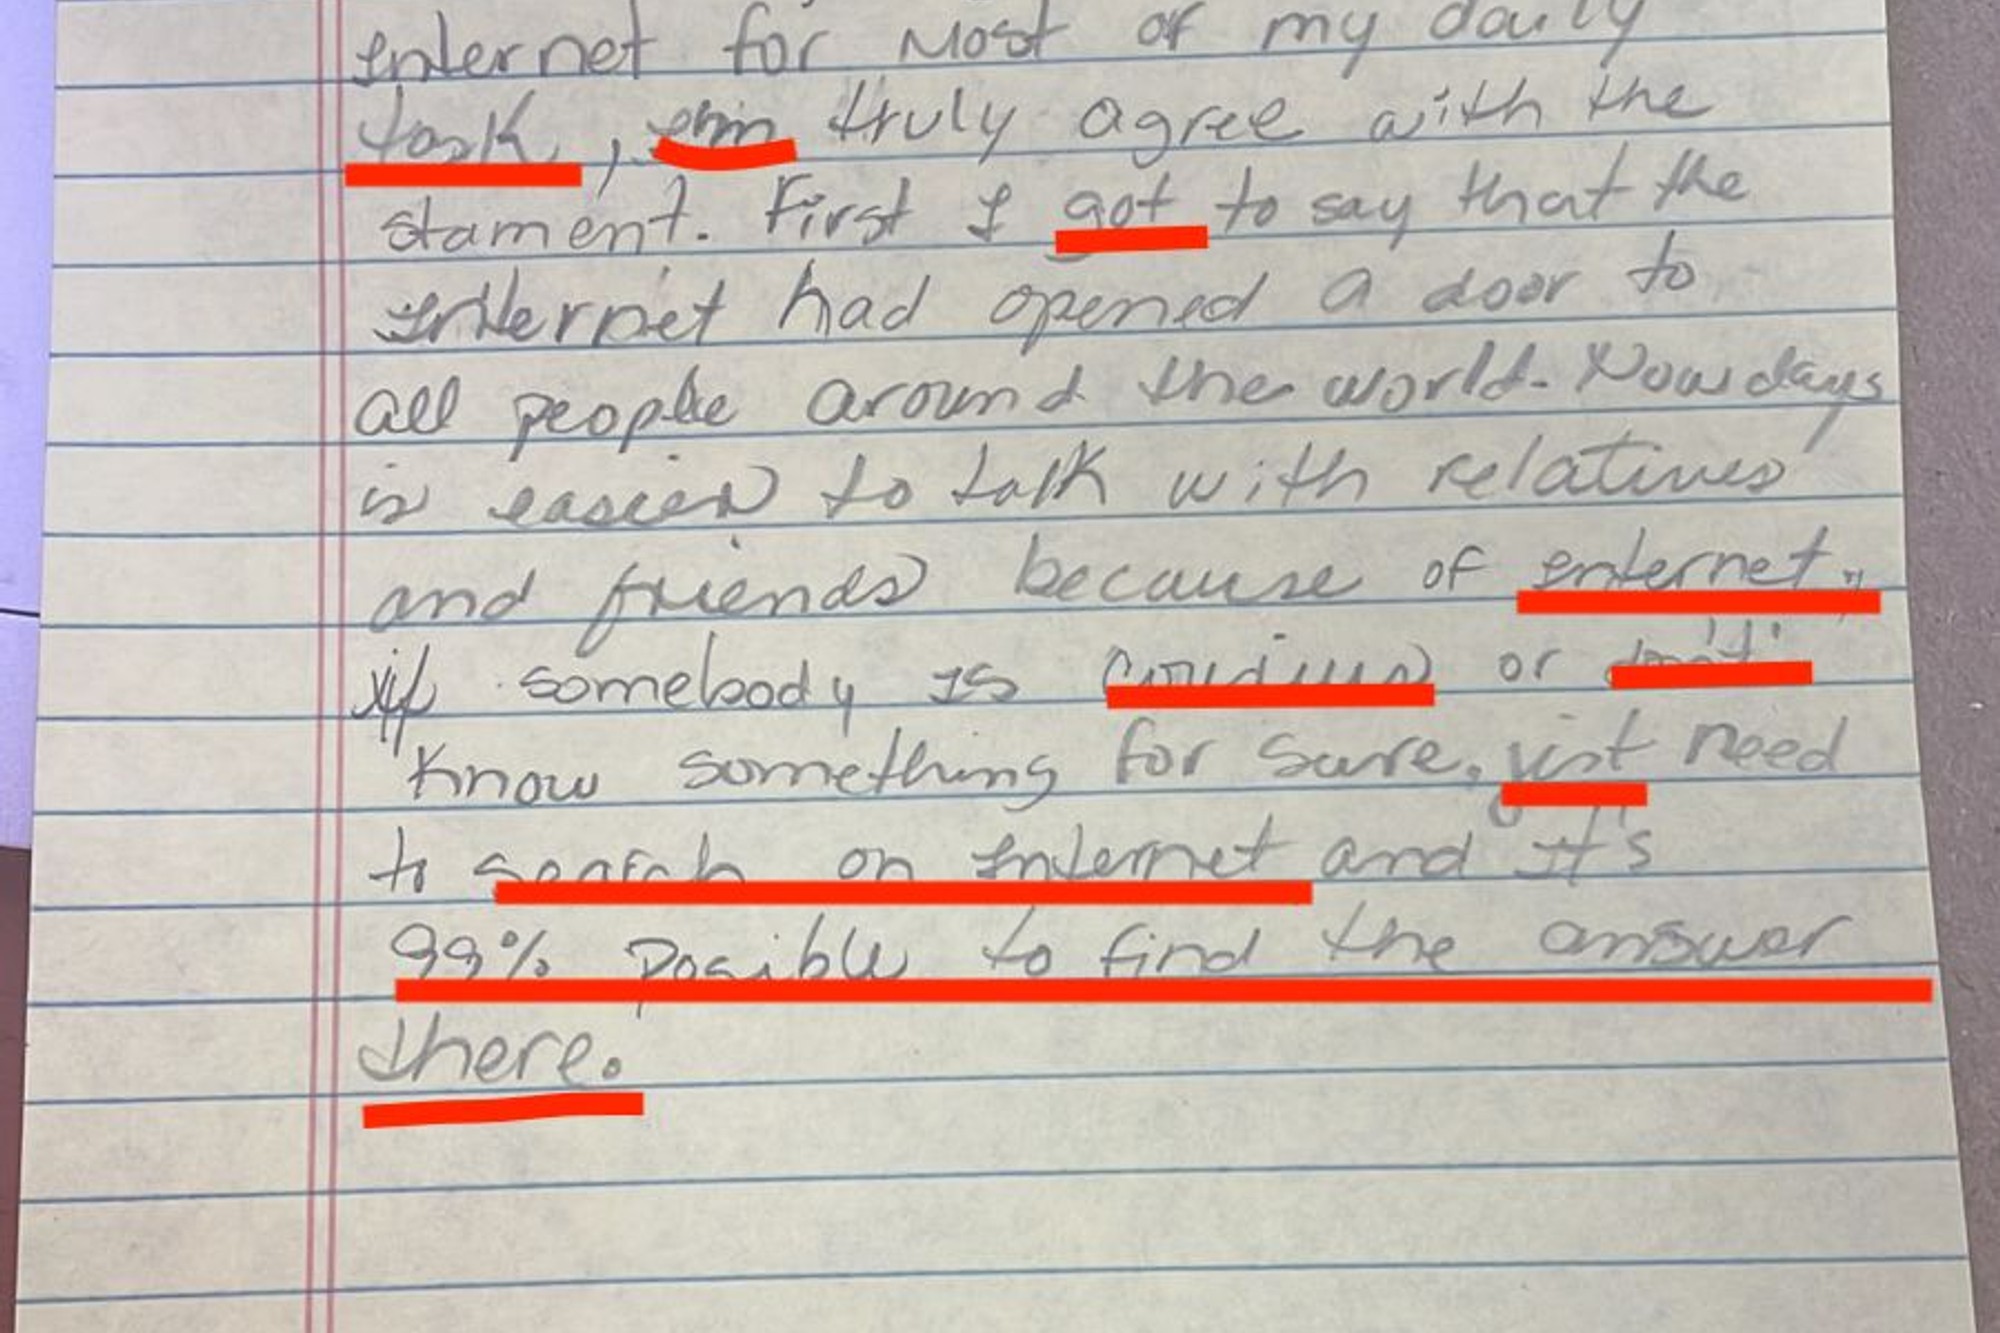 Internet for Most of my daily
task, I'm truly agree with the
stament. First I got to say that the
Internet had opened a door to
all people around the world. Nowdays
is easier to talk with relatives
and friends because of internet.
if somebody is or don't
Know something for sure, just need
to search on Internet and It's
99% posible to find the answer
there.